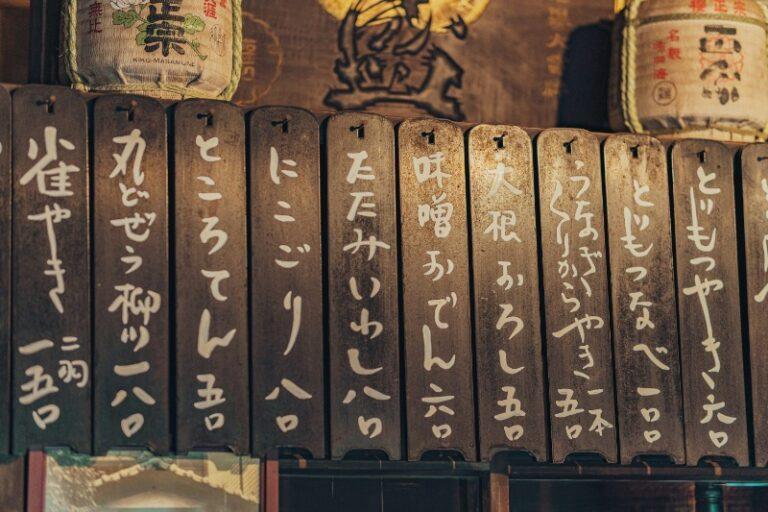 正宗
KIKU-MASAMUNE
とりもつやき 六〇
とりもつなべ 一〇〇
うなぎ
くりからやき 一本
五〇
大根おろし 五〇
味噌おでん 六〇
たたみいわし 八〇
にこごり 八〇
ところてん 五〇
丸どぜう柳川 一八〇
雀やき 二羽
一五〇